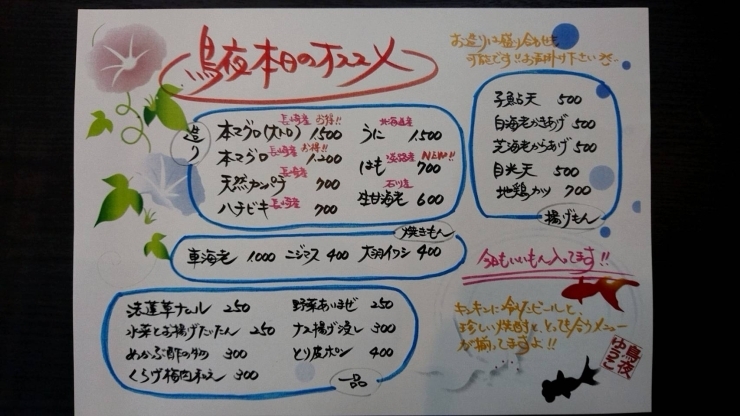 鳥夜本日のオススメ
お造りは盛り合わせも
可能です!!お声掛け下さいませ
造り
長崎産 お得!!
本マグロ(大トロ) 1,500
長崎産 お得!!
本マグロ 1,200
長崎産
天然カンパチ 700
長崎産
ハチビキ 700
北海道産
うに 1,500
淡路産 NEW!!
はも 700
石川産
生甘海老 600
子鮎天 500
白海老かきあげ 500
芝海老からあげ 500
目光天 500
地鶏カツ 700
揚げもん
焼きもん
車海老 1,000 ニジマス 400 大羽イワシ 400
法蓮草ナムル 250
水菜とお揚げたいたん 250
めかぶ酢の物 300
くらげ梅肉和え 300
野菜あいまぜ 250
ナス揚げ浸し 300
とり皮ポン 400
一品
今日もいいもん入ってます!!
キンキンに冷えたビールと、
珍しい焼酎と、とっても合うメニュー
が揃ってますよ!!
鳥夜